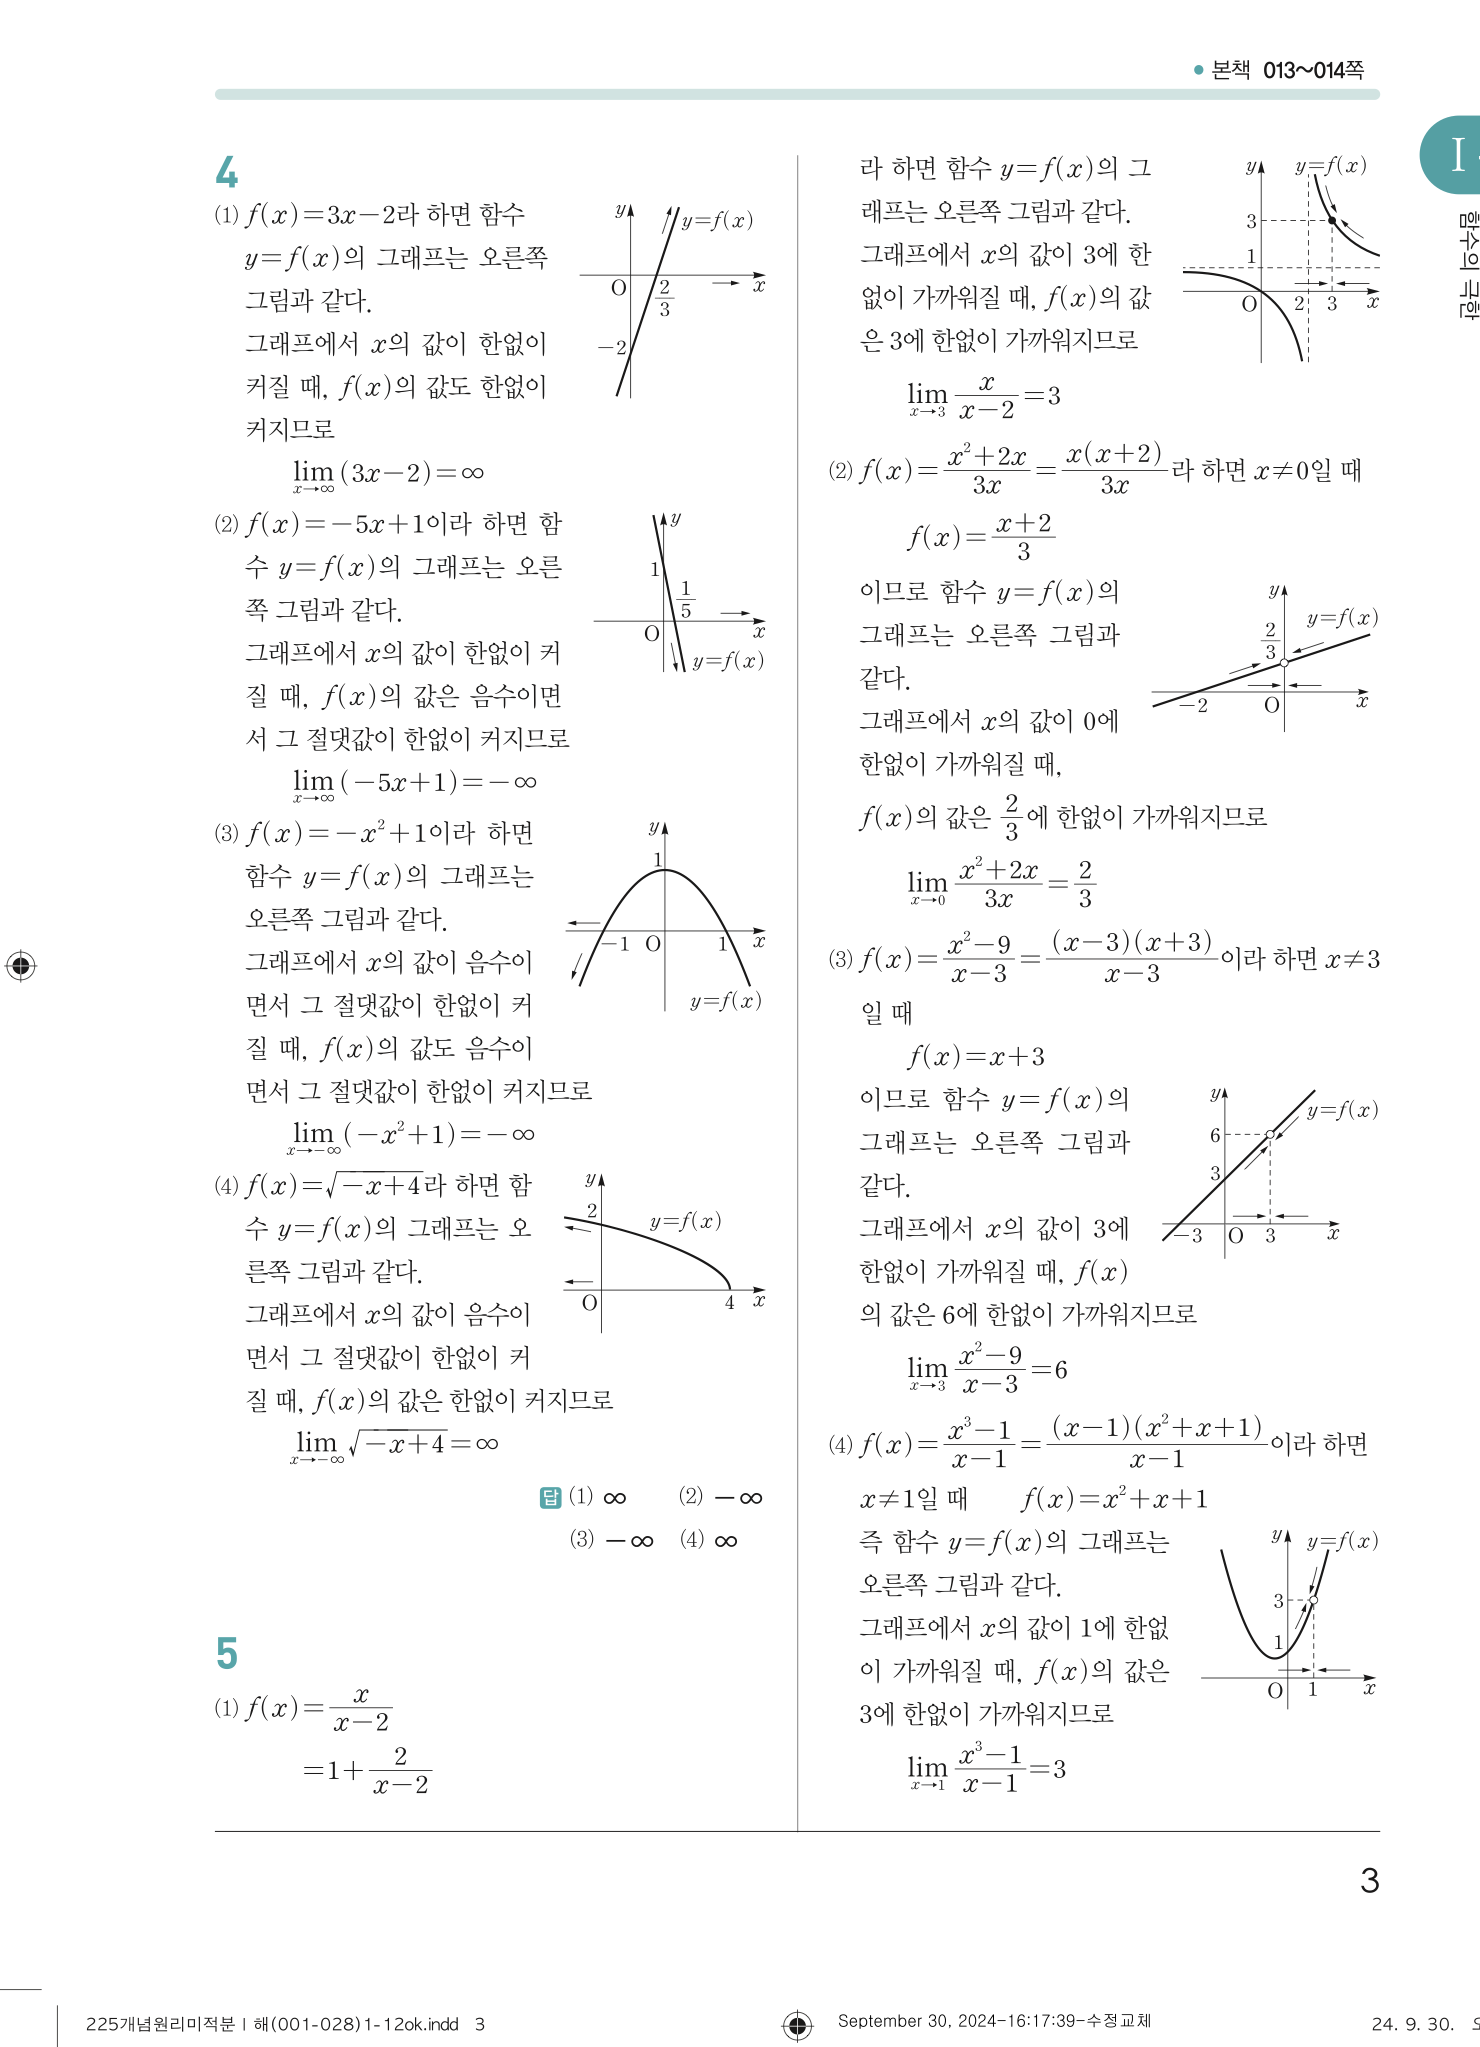 본책 013~014쪽
I
함수의 극한
4
(1) f(x)=3x-2라 하면 함수
y=f(x)의 그래프는 오른쪽
그림과 같다.
그래프에서 x의 값이 한없이
커질 때, f(x)의 값도 한없이
커지므로
lim_{x→∞} (3x-2)=∞
y
y=f(x)
O
2/3
x
-2
(2) f(x)=-5x+1이라 하면 함
수 y=f(x)의 그래프는 오른
쪽 그림과 같다.
그래프에서 x의 값이 한없이 커
질 때, f(x)의 값은 음수이면
서 그 절댓값이 한없이 커지므로
lim_{x→∞} (-5x+1)=-∞
y
1
1/5
O
x
y=f(x)
(3) f(x)=-x²+1이라 하면
함수 y=f(x)의 그래프는
오른쪽 그림과 같다.
그래프에서 x의 값이 음수이
면서 그 절댓값이 한없이 커
질 때, f(x)의 값도 음수이
면서 그 절댓값이 한없이 커지므로
lim_{x→-∞} (-x²+1)=-∞
y
1
-1
O
1
x
y=f(x)
(4) f(x)=√(-x+4)라 하면 함
수 y=f(x)의 그래프는 오
른쪽 그림과 같다.
그래프에서 x의 값이 음수이
면서 그 절댓값이 한없이 커
질 때, f(x)의 값은 한없이 커지므로
lim_{x→-∞} √(-x+4)=∞
y
2
y=f(x)
O
4
x
답 (1) ∞ (2) -∞
(3) -∞ (4) ∞
5
(1) f(x)=x/(x-2)
=1+2/(x-2)
라 하면 함수 y=f(x)의 그
래프는 오른쪽 그림과 같다.
그래프에서 x의 값이 3에 한
없이 가까워질 때, f(x)의 값
은 3에 한없이 가까워지므로
lim_{x→3} x/(x-2)=3
y
y=f(x)
3
1
O
2
3
x
(2) f(x)=(x²+2x)/3x=x(x+2)/3x라 하면 x≠0일 때
f(x)=(x+2)/3
이므로 함수 y=f(x)의
그래프는 오른쪽 그림과
같다.
그래프에서 x의 값이 0에
한없이 가까워질 때,
f(x)의 값은 2/3에 한없이 가까워지므로
lim_{x→0} (x²+2x)/3x=2/3
y
y=f(x)
2/3
-2
O
x
(3) f(x)=(x²-9)/(x-3)=(x-3)(x+3)/(x-3)이라 하면 x≠3
일 때
f(x)=x+3
이므로 함수 y=f(x)의
그래프는 오른쪽 그림과
같다.
그래프에서 x의 값이 3에
한없이 가까워질 때, f(x)
의 값은 6에 한없이 가까워지므로
lim_{x→3} (x²-9)/(x-3)=6
y
y=f(x)
6
3
-3
O
3
x
(4) f(x)=(x³-1)/(x-1)=(x-1)(x²+x+1)/(x-1)이라 하면
x≠1일 때 f(x)=x²+x+1
즉 함수 y=f(x)의 그래프는
오른쪽 그림과 같다.
그래프에서 x의 값이 1에 한없
이 가까워질 때, f(x)의 값은
3에 한없이 가까워지므로
lim_{x→1} (x³-1)/(x-1)=3
y
y=f(x)
3
1
O
1
x
3
225개념원리미적분Ⅰ해(001-028)1-12ok.indd 3
September 30, 2024-16:17:39-수정교체
24. 9. 30.